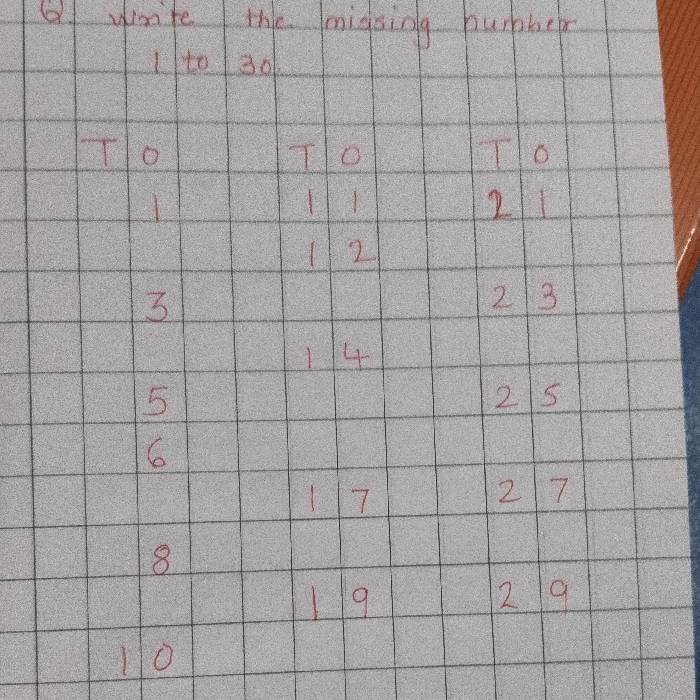 Q write the missing number
1 to 30
T O T O T O
1 11 21
12
3 23
14
5 25
6
17 27
8
19 29
10